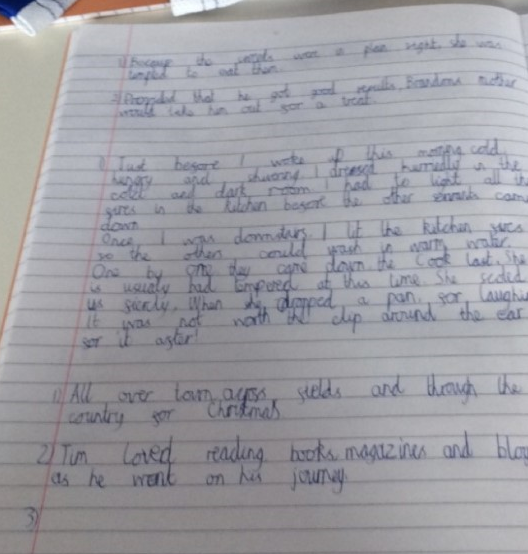 1) Because the words were in plain sight, she was
tempted to eat them.
2) Provided that he got good results, Brandons mother
would take him out for a treat.
1) Just besore I woke up this morning cold,
hungry and shivering I dressed hurriedly in the
cold and dark room I had to light all the
sires in the kitchen besore the other servants came
down
Once I was downstairs I lit the kitchen sires
so the others could wash in warm water.
One by one they came down the Cook last. She
is usually bad tempered at this time. She scolded
us siercly, When she dropped a pan, sor laughing
It was not worth the clip around the ear
sor it aster!
1) All over town, across sields and through the
country sor Christmas
2) Tim loved reading books, magazines and blog
as he went on his journey.
3)